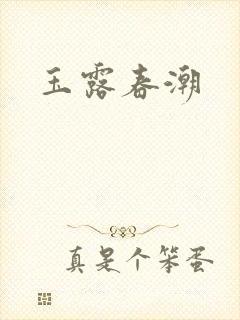 玉露春潮
真是个笨蛋